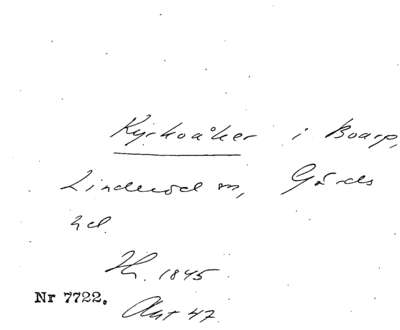 Kyrkoåker i Boarp,
Linderöd sn, Gärds
hd.
1845
Nr 7722. Akt 47